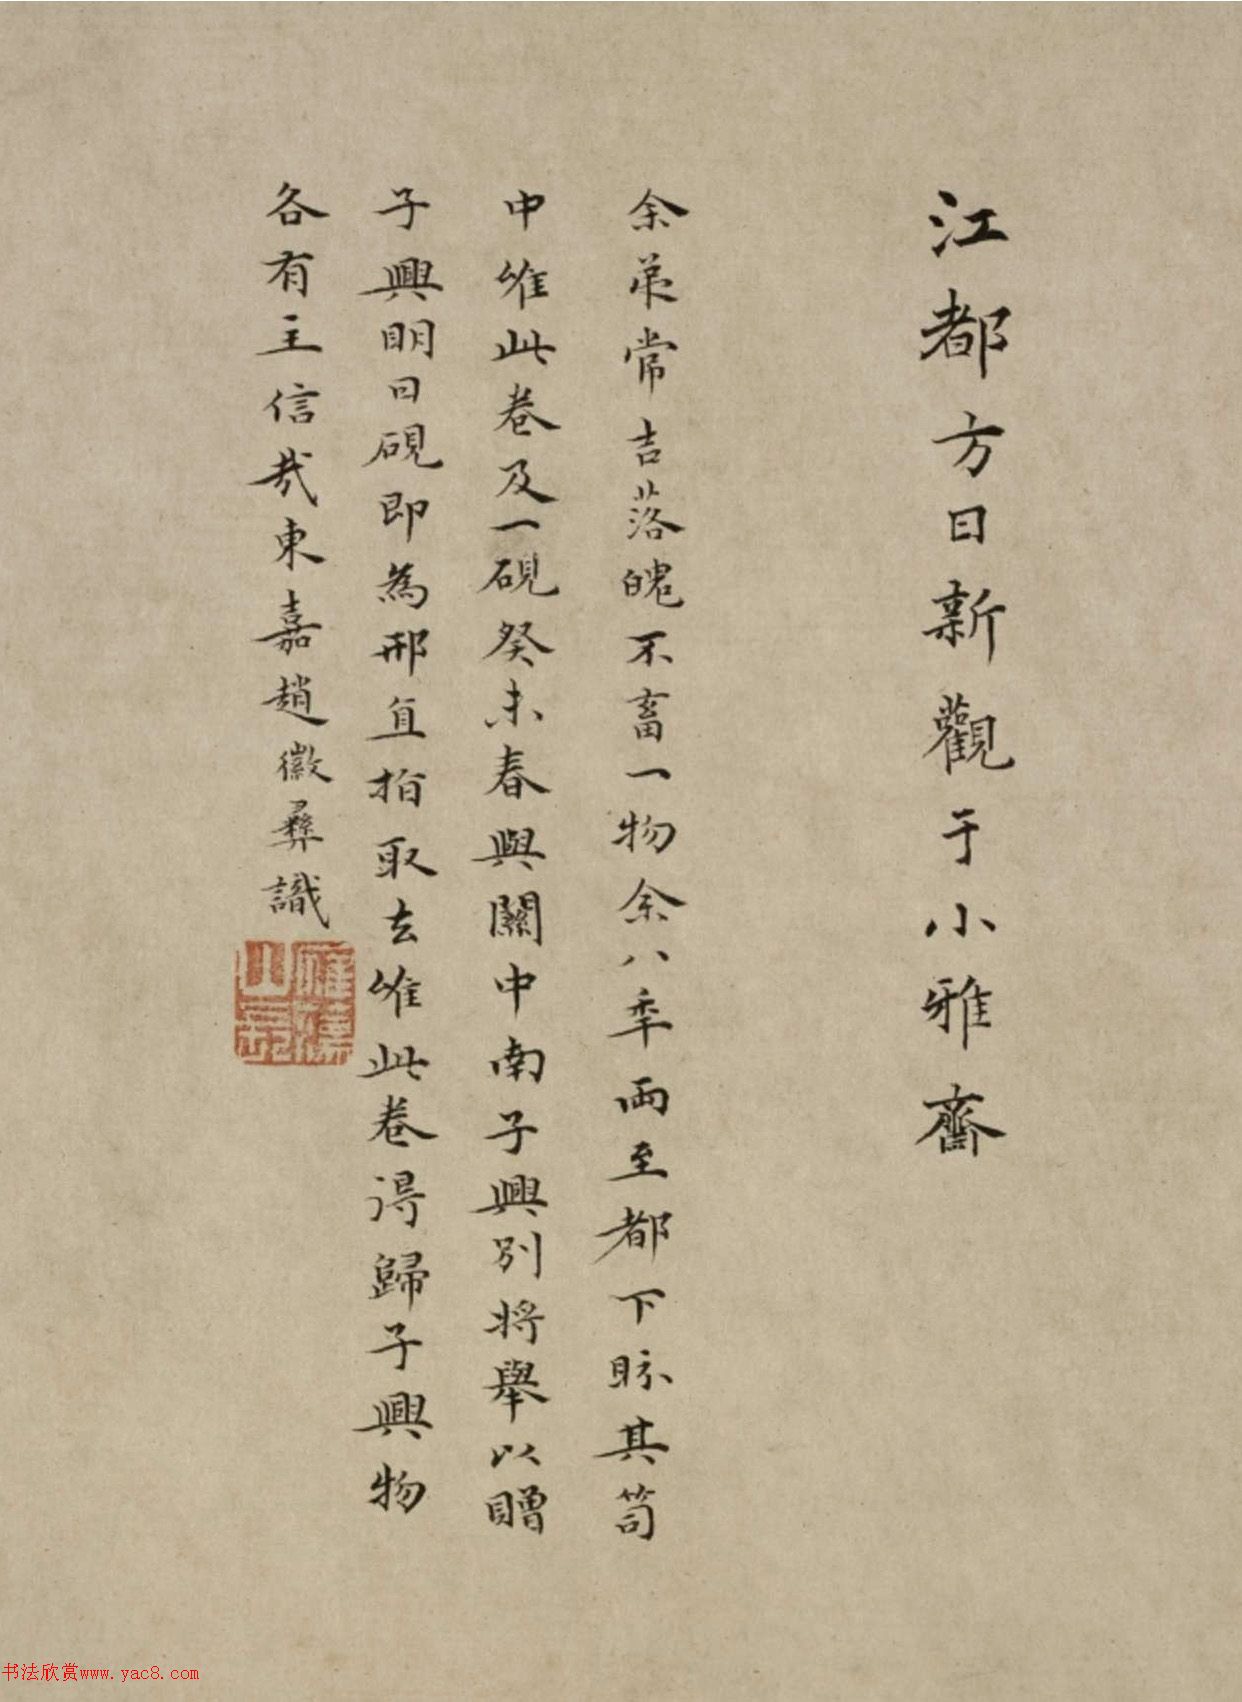 江都方日新觀于小雅齋
余弟常吉落魄不畜一物余八年兩至都下眎其笥
中唯此卷及一硯癸未春與關中南子興別將舉以贈
子興明日硯即為邢直指取去唯此卷得歸子興物
各有主信哉東嘉趙徽彝識
雁蕩山長
书法欣赏www.yac8.com